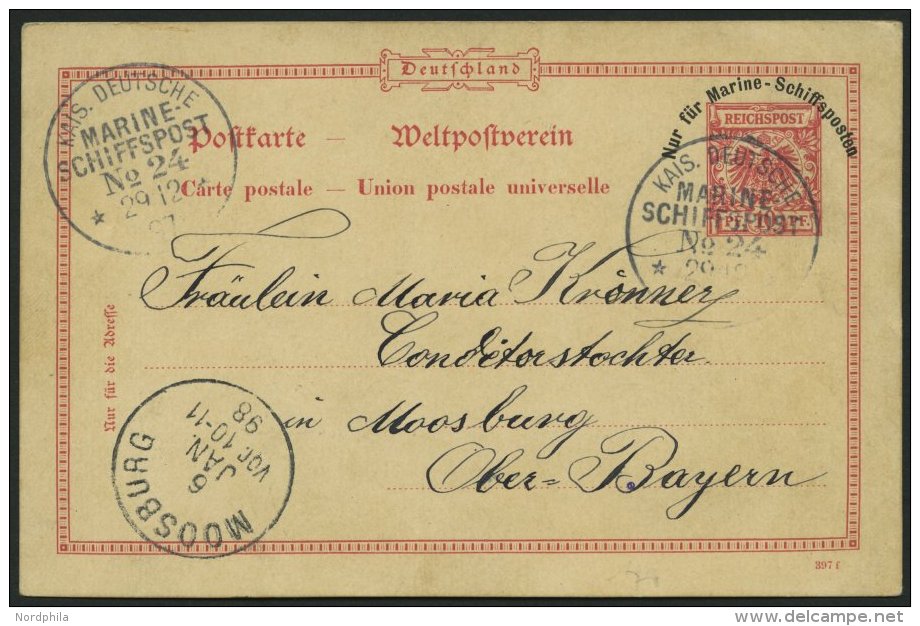 Deutschland
Nur für Marine-Schiffsposten
REICHSPOST
KAIS. DEUTSCHE
MARINE-
SCHIFFSPOST
No 24
29 12
97
Postkarte – Weltpostverein
Carte postale – Union postale universelle
KAIS. DEUTSCHE
MARINE-
SCHIFFSPOST
No 24
29 12
Fräulein Maria Krönner
Conditorstochter
in Moosburg
Ober=Bayern
Nur für die Adresse
MOOSBURG
6
JAN.
VOR. 10-11
98
397 f
Nordphila
delcampe.net